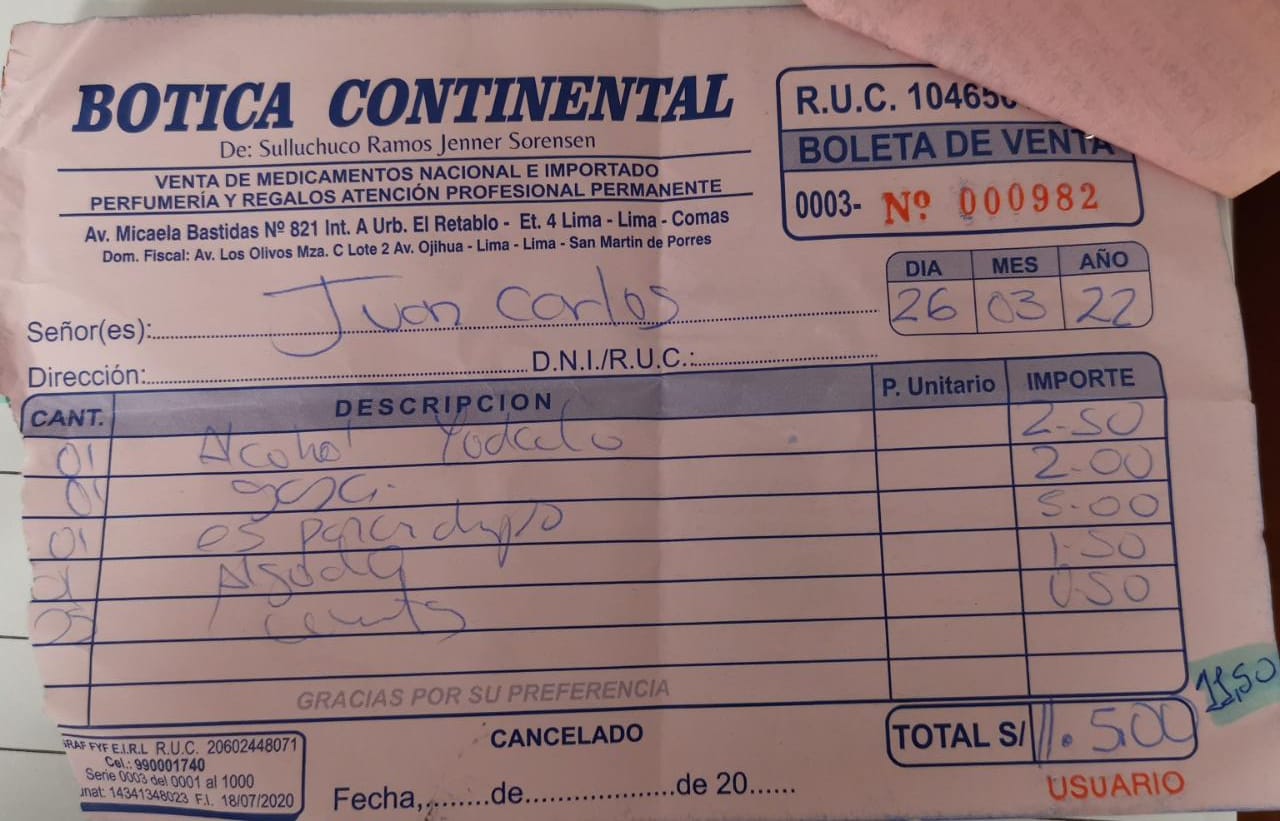 BOTICA CONTINENTAL
De: Sulluchuco Ramos Jenner Sorensen
VENTA DE MEDICAMENTOS NACIONAL E IMPORTADO
PERFUMERÍA Y REGALOS ATENCIÓN PROFESIONAL PERMANENTE
Av. Micaela Bastidas Nº 821 Int. A Urb. El Retablo - Et. 4 Lima - Lima - Comas
Dom. Fiscal: Av. Los Olivos Mza. C Lote 2 Av. Ojihua - Lima - Lima - San Martin de Porres
R.U.C. 10465
BOLETA DE VENTA
0003- Nº 000982
DIA MES AÑO
26 03 22
Señor(es): Juan Carlos
Dirección: D.N.I./R.U.C.:
CANT. DESCRIPCION P. Unitario IMPORTE
01 Alcohol Yodado 2.50
01 gasa 2.00
01 esparadrapo 5.00
01 Algodón 1.50
0.50
GRACIAS POR SU PREFERENCIA
11,50
CANCELADO
TOTAL S/ 11.500
Fecha, de de 20
USUARIO
GRAF FYF E.I.R.L R.U.C. 20602448071
Cel.: 990001740
Serie 0003 del 0001 al 1000
unat: 14341348023 F.I. 18/07/2020